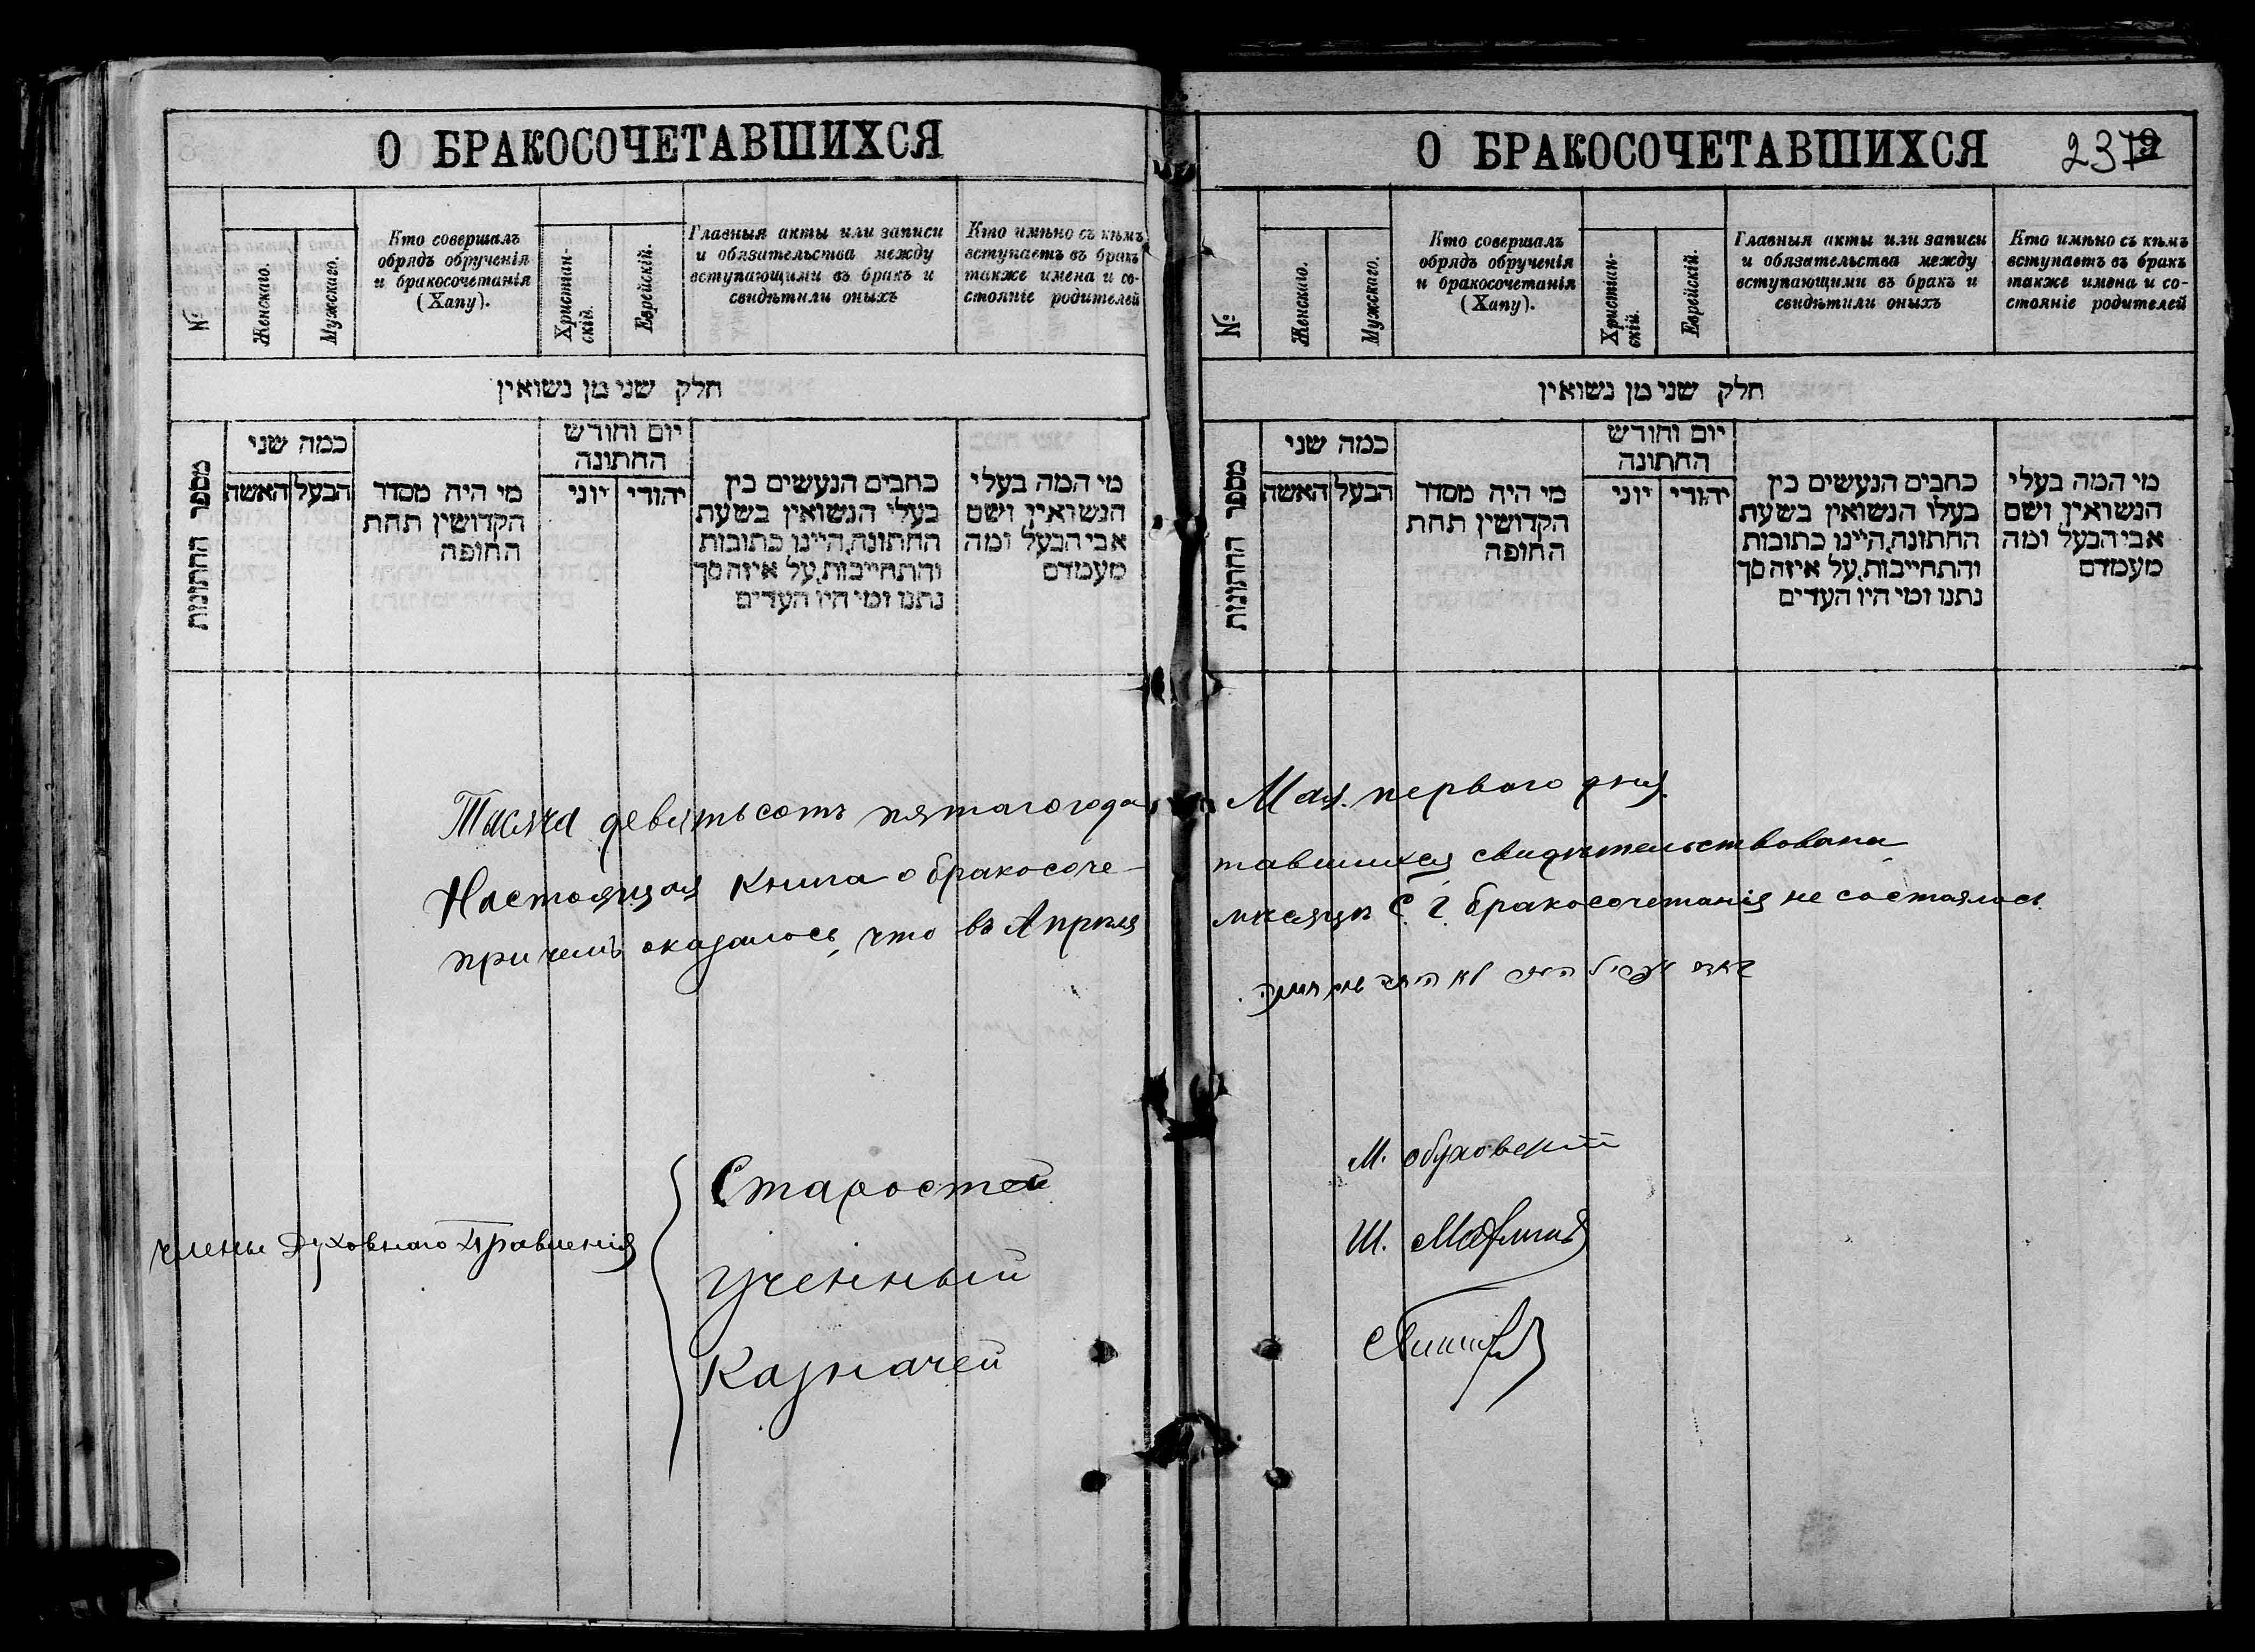 О БРАКОСОЧЕТАВШИХСЯ
№
Женскаго.
Мужскаго.
Кто совершалъ
обрядъ обрученія
и бракосочетанія
(Хапу).
Христіан-
скій.
Еврейскій.
Главныя акты или записи
и обязательства между
вступающими въ бракъ и
свидѣтили оныхъ
Кто имѣно съ кѣмъ
вступаетъ въ бракъ
также имена и со-
стояніе родителей
חלק שני מן נשואין
מספר החתונות
כמה שני
האשה
הבעל
מי היה מסדר
הקדושין תחת
החופה
יום וחודש
החתונה
יוני
יהודי
כתבים הנעשים בין
בעלי הנשואין בשעת
החתונה, היינו כתובות
והתחייבות, על איזה סך
נתנו ומי היו העדים
מי המה בעלי
הנשואין ושם
אבי הבעל ומה
מעמדם
Тысяча девятьсотъ пятаго года
Настоящая книга о бракосоче-
причемъ оказалось, что въ Апрѣля
Члены Духовнаго Правленія
Старостей
Ученный
Казначей
О БРАКОСОЧЕТАВШИХСЯ
237
№
Женскаго.
Мужскаго.
Кто совершалъ
обрядъ обрученія
и бракосочетанія
(Хапу).
Христіан-
скій.
Еврейскій.
Главныя акты или записи
и обязательства между
вступающими въ бракъ и
свидѣтили оныхъ
Кто имѣно съ кѣмъ
вступаетъ въ бракъ
также имена и со-
стояніе родителей
חלק שני מן נשואין
מספר החתונות
כמה שני
האשה
הבעל
מי היה מסדר
הקדושין תחת
החופה
יום וחודש
החתונה
יוני
יהודי
כתבים הנעשים בין
בעלו הנשואין בשעת
החתונה, היינו כתובות
והתחייבות, על איזה סך
נתנו ומי היו העדים
מי המה בעלי
הנשואין ושם
אבי הבעל ומה
מעמדם
Мая первого дня.
тавшихся свидѣтельствована
мѣсяцѣ С. Г. бракосочетанія не состоялось
לא היתה שום חתונה
М. Обуховский
Ш.